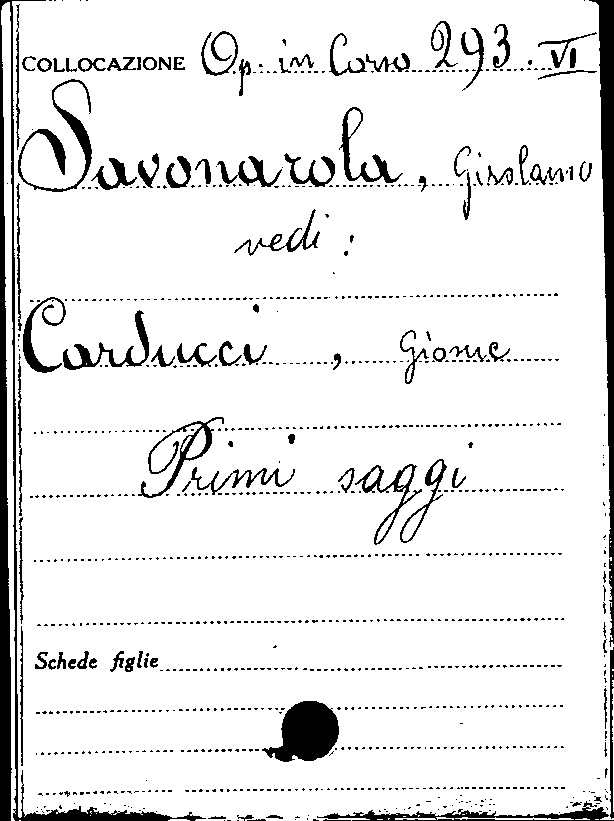 COLLOCAZIONE Op. in Corso 293. VI
Savonarola, Girolamo
vedi:
Carducci, Giosue
Primi saggi
Schede figlie